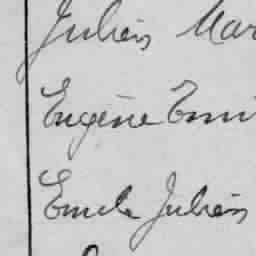 Julien Mar
Eugène Emi
Emile Julien